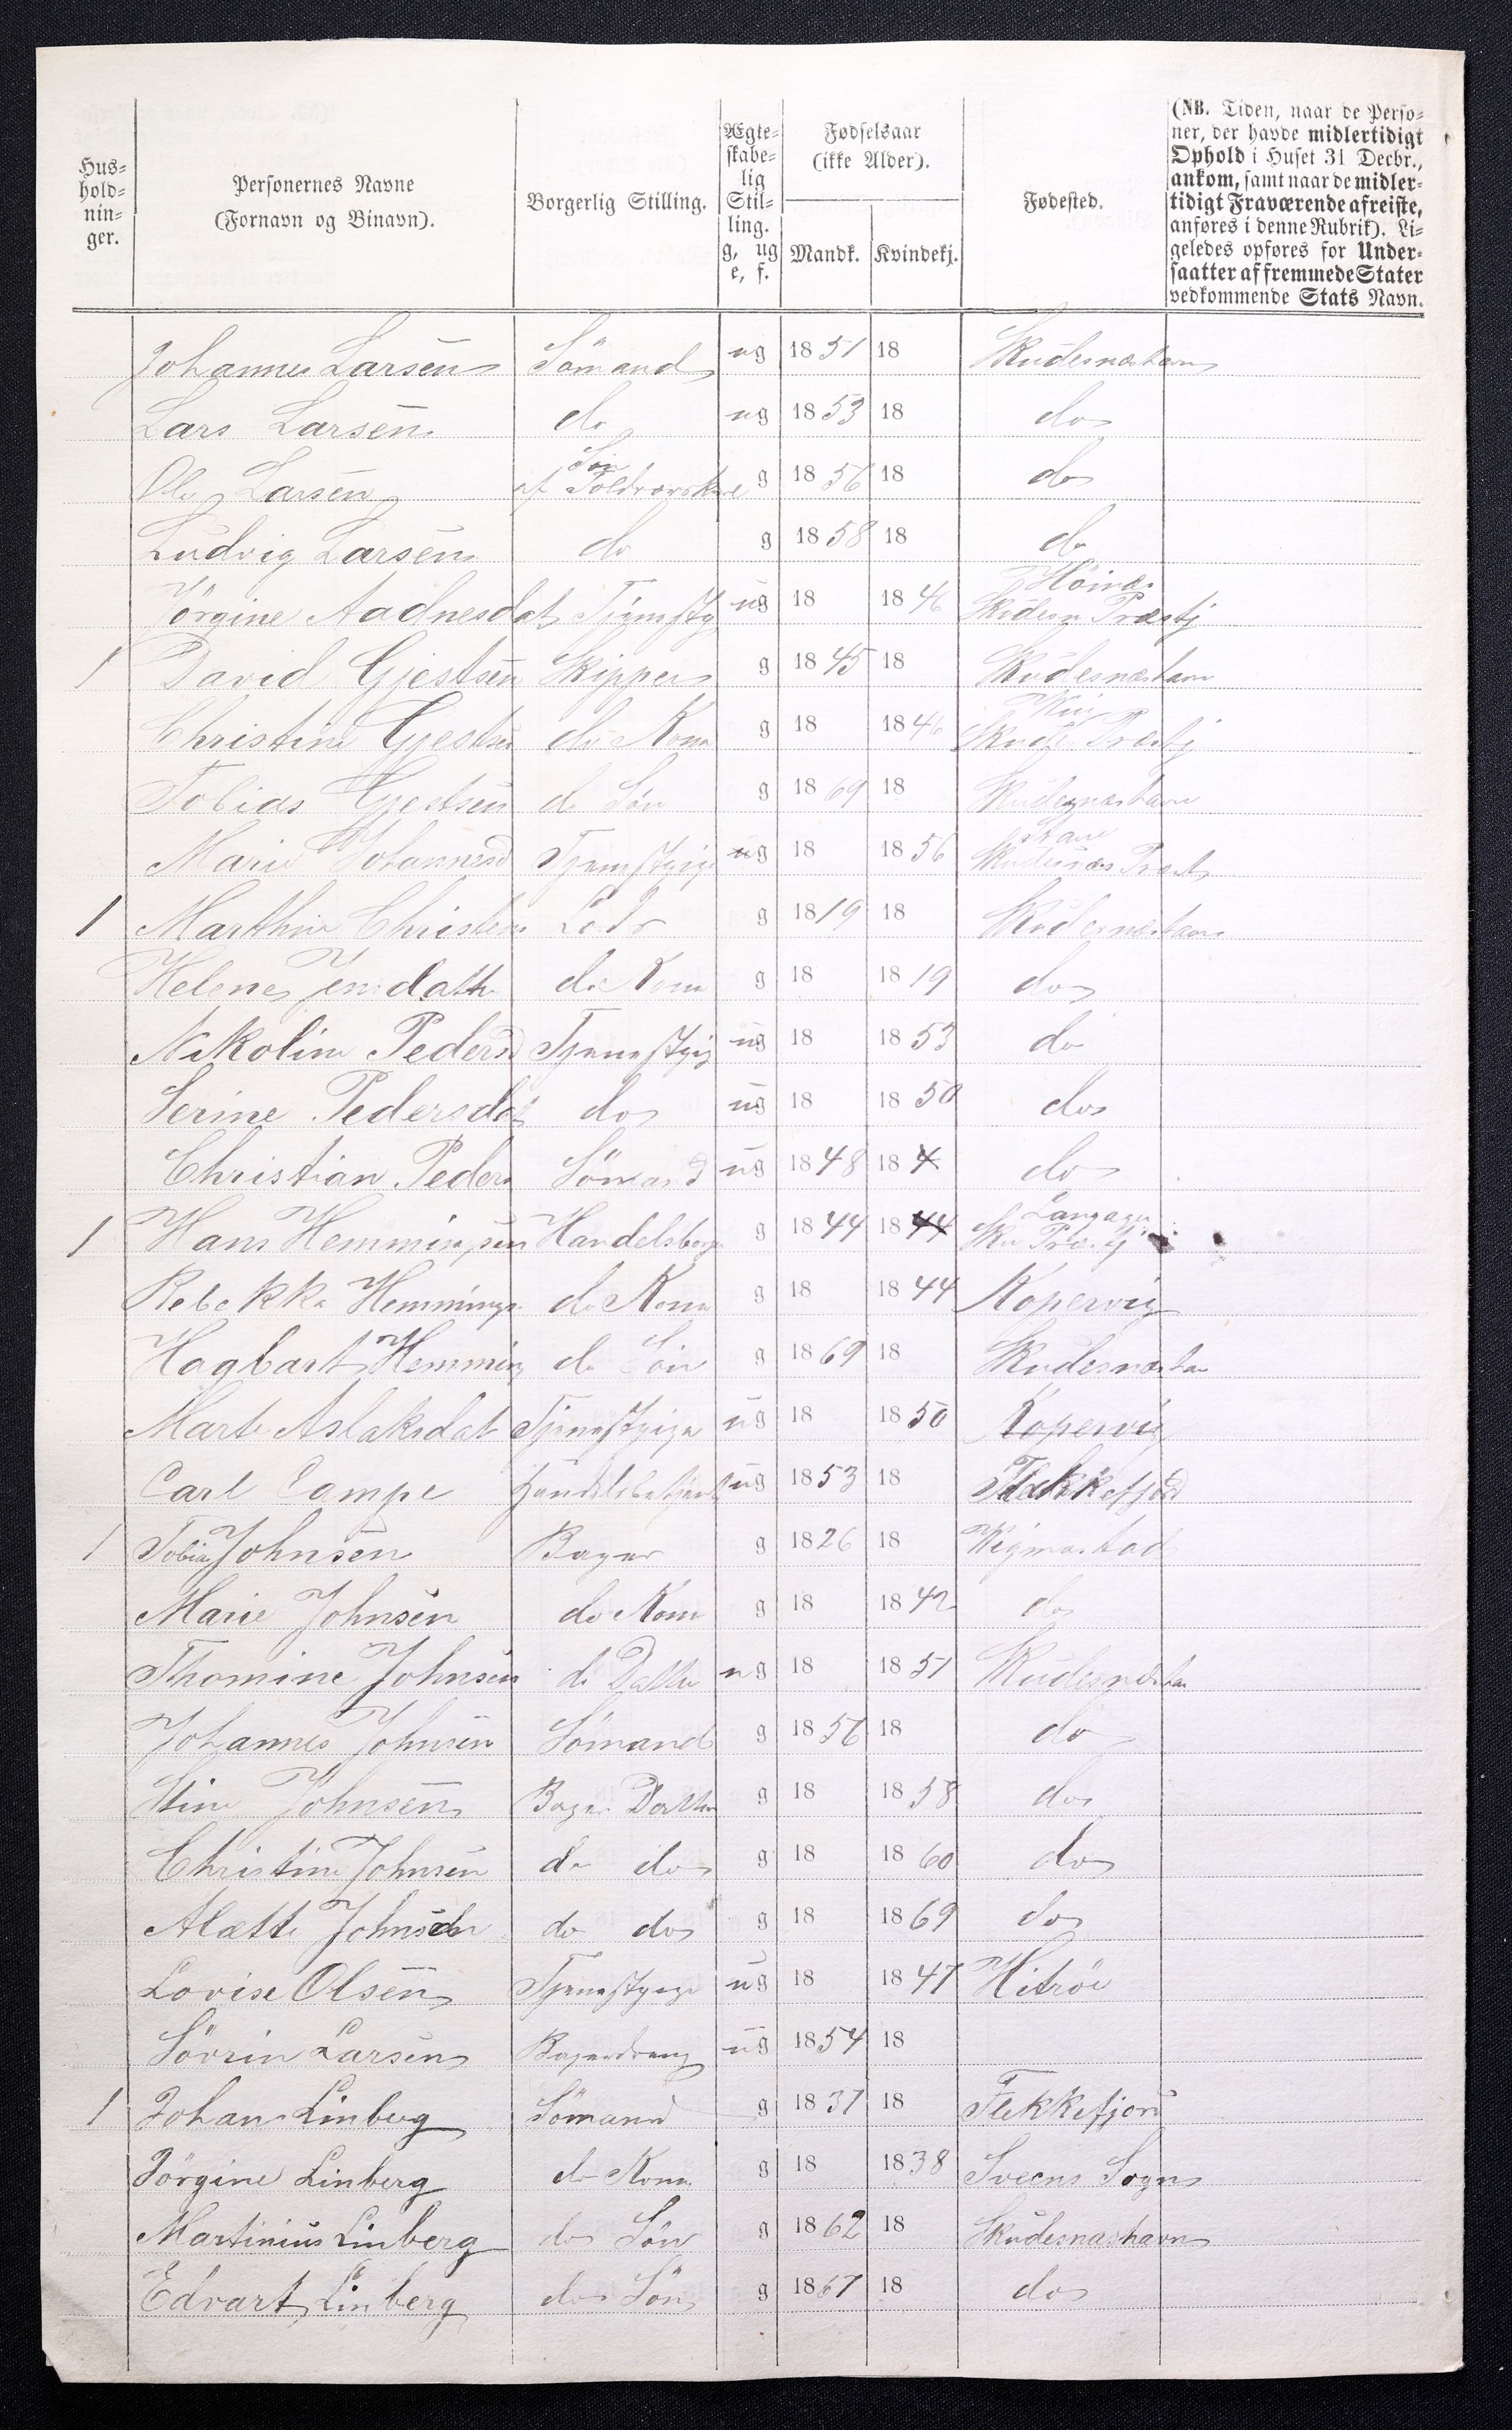 Hus-
hold-
nin-
ger.
Personernes Navne
(Fornavn og Binavn).
Borgerlig Stilling.
Ægte-
skabe-
lig
Stil-
ling.
g, ug
e, f.
Fødselsaar
(ikke Alder).
Mandk.
Kvindekj.
Fødested.
(NB. Tiden, naar de Perso-
ner, der havde midlertidigt
Ophold i Huset 31 Decbr.,
ankom, samt naar de midler-
tidigt Fraværende afreiste,
anføres i denne Rubrik). Li-
geledes opføres for Under-
saatter af fremmede Stater
vedkommende Stats Navn.
Johannes Larsen Sömand ug 1851 18 Skudesnæshavn
Lars Larsen do ug 1853 18 do
Ole Larsen Søn af g 1856 18 do
Ludvig Larsen do g 1858 18 do
Jörgine Aadnesdat ug 18 1846 Skudesn Præstj
1 David Gjestsen Skipper g 1845 18 Skudesnæshavn
Christine Gjestsen do Kone g 18 1846 Skude Præstj
Tobias Gjestsen do Sön g 1869 18 Skudesnæshavn
Marie Johannesd ug 18 1856 Skudesnæs Præst
1 Marthin Christens Lods g 1819 18 Skudesnæshavn
Helene Jensdatte do Kone g 18 1819 do
Nikoline Pedersd ug 18 1853 do
Serine Pedersdat do ug 18 1850 do
Christian Peders Sömand ug 1848 18 do
1 Hans Hemmingsen Handelsborg g 1844 1844 Sku Præstj
Rebekka Hemmings do Kone g 18 1844 Kopervig
Hagbart Hemming do Sön g 1869 18 Skudesnæshav
Marte Aslaksdat ug 18 1850 Kopervig
Carl Campe Handelsbetjent ug 1853 18 Flekkefjord
1 Tobias Johnsen Bager g 1826 18 Vigmostad
Marie Johnsen do Kone g 18 1842 do
Thomine Johnsen do Datter ug 18 1851 Skudesnæshav
Johannes Johnsen Sömand g 1856 18 do
Stine Johnsen Bager Datter g 18 1858 do
Christine Johnsen do do g 18 1860 do
Alætte Johnsen do do g 18 1869 do
Lovise Olsen ug 18 1847 Hitröe
Sövrin Larsen Bagerdreng ug 1854 18
1 Johan Linberg Sömand g 1837 18 Flekkefjord
Jörgine Linberg do Kone g 18 1838 Sveens Sogn
Martinius Linberg do Sön g 1862 18 Skudesnashavn
Edvart Linberg do Sön g 1867 18 do